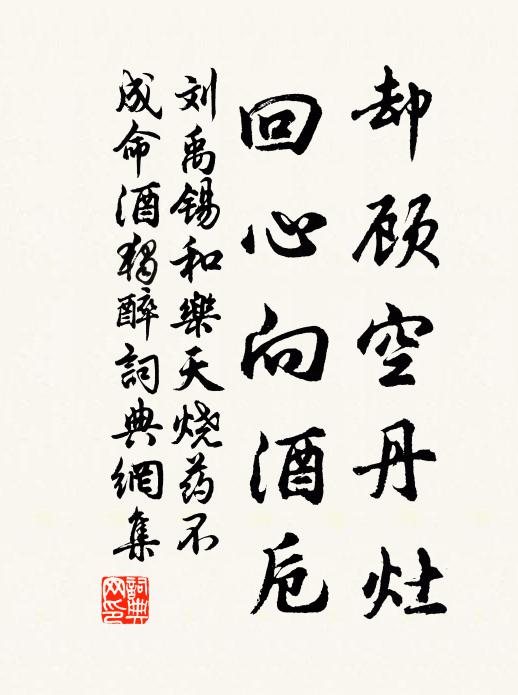 却顾空丹灶
回心向酒卮
刘禹锡和樂天烧药不
成命酒獨醉詞典網集
詞典
网印